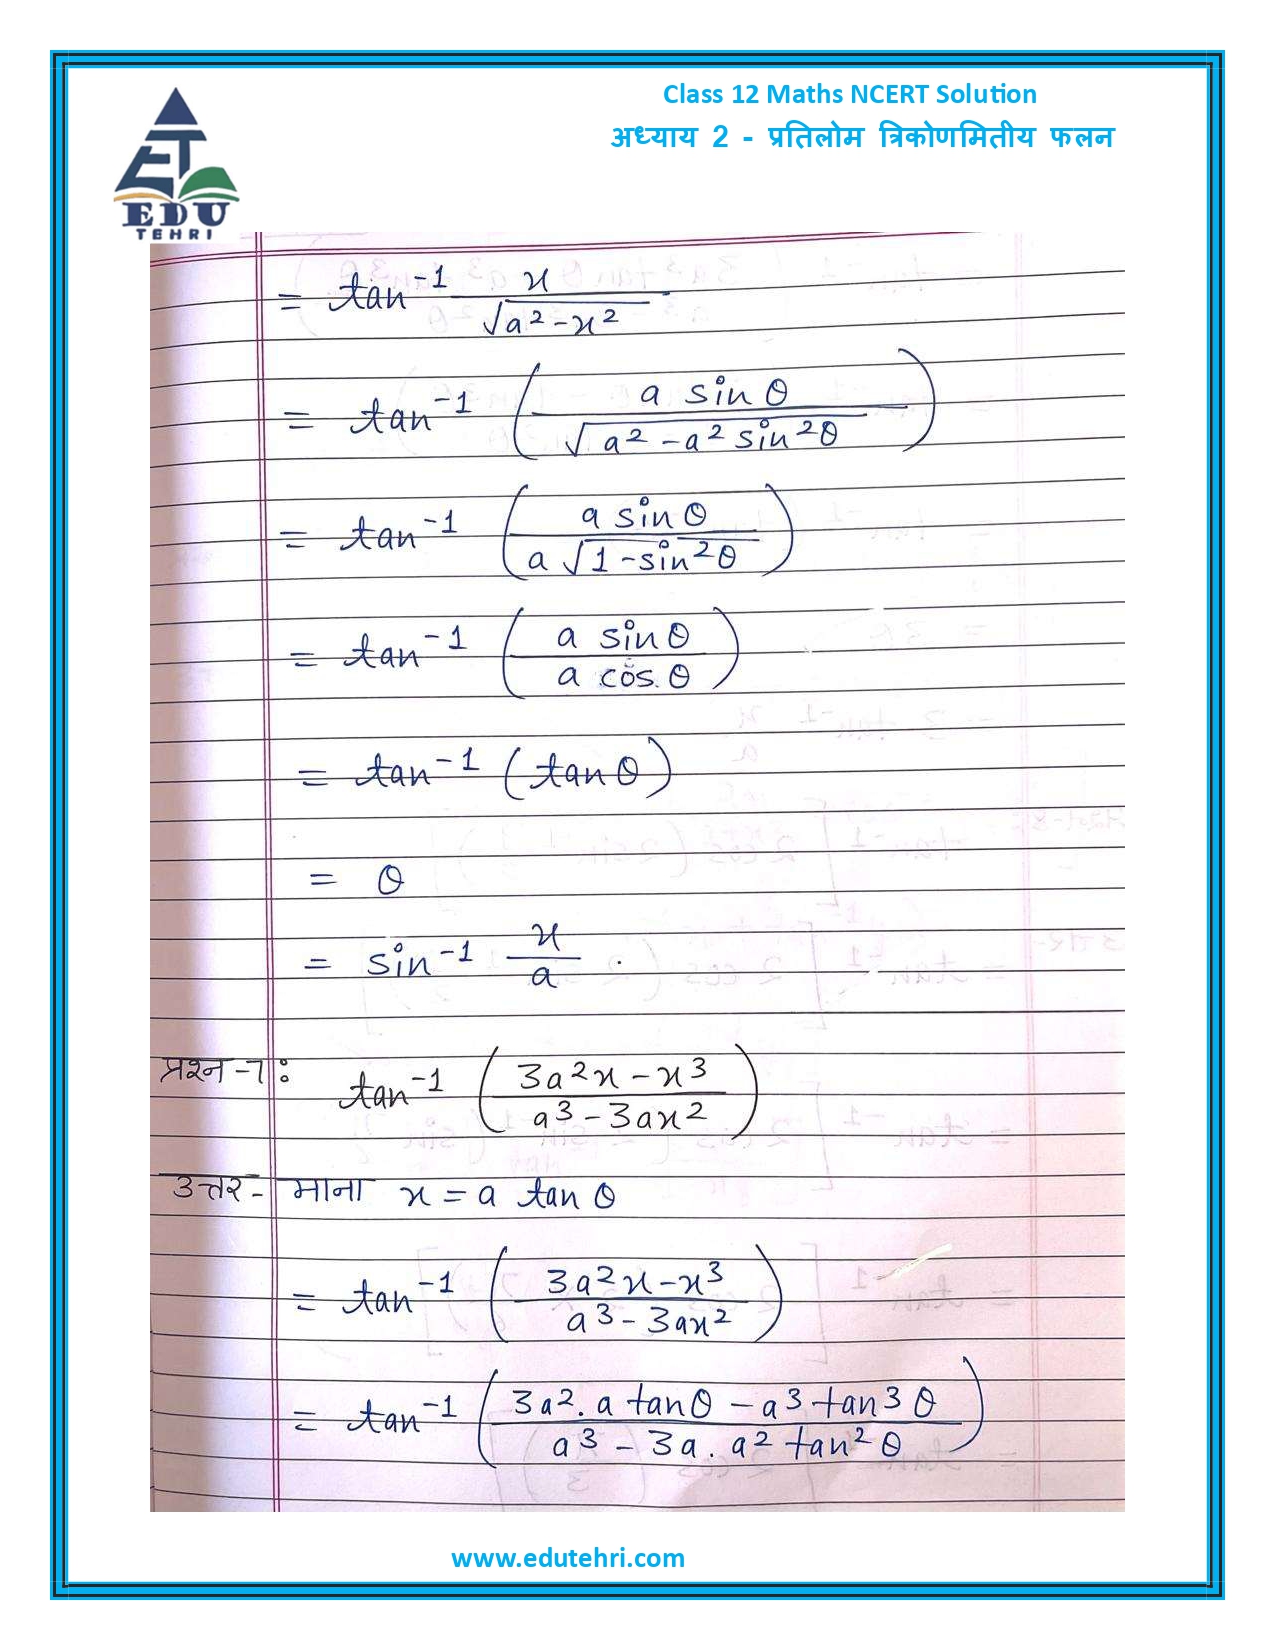 Class 12 Maths NCERT Solution
अध्याय 2 - प्रतिलोम त्रिकोणमितीय फलन
EDU
TEHRI
= tan⁻¹ x / √(a² - x²)
= tan⁻¹ (a sin θ / √(a² - a² sin² θ))
= tan⁻¹ (a sin θ / a √(1 - sin² θ))
= tan⁻¹ (a sin θ / a cos θ)
= tan⁻¹ (tan θ)
= θ
= sin⁻¹ x / a .
प्रश्न-7: tan⁻¹ ((3a²x - x³) / (a³ - 3ax²))
उत्तर- माना x = a tan θ
= tan⁻¹ ((3a²x - x³) / (a³ - 3ax²))
= tan⁻¹ ((3a². a tan θ - a³ tan3 θ) / (a³ - 3a . a² tan² θ))
www.edutehri.com